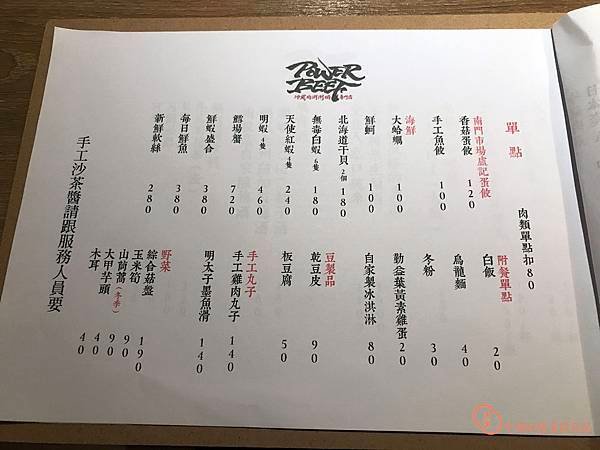 POWER
BEEF
單點
南門市場盧記蛋餃
香菇蛋餃 120
手工魚餃 100
海鮮
大蛤蠣 100
鮮蚵 100
北海道干貝2個 180
無毒白蝦6隻 180
天使紅蝦4隻 240
明蝦4隻 460
鱈場蟹 720
鮮蝦盛合 380
每日鮮魚 380
新鮮軟絲 280
肉類單點扣80
附餐單點
白飯 20
烏龍麵 40
冬粉 30
勤益葉黃素雞蛋 20
自家製冰淇淋 80
豆製品
乾豆皮 90
板豆腐 50
手工丸子
手工雞肉丸子 140
明太子墨魚滑 140
野菜
綜合菇盤 190
玉米筍 90
山茼蒿(冬季) 90
大甲芋頭 40
木耳 40
手工沙茶醬請跟服務人員要